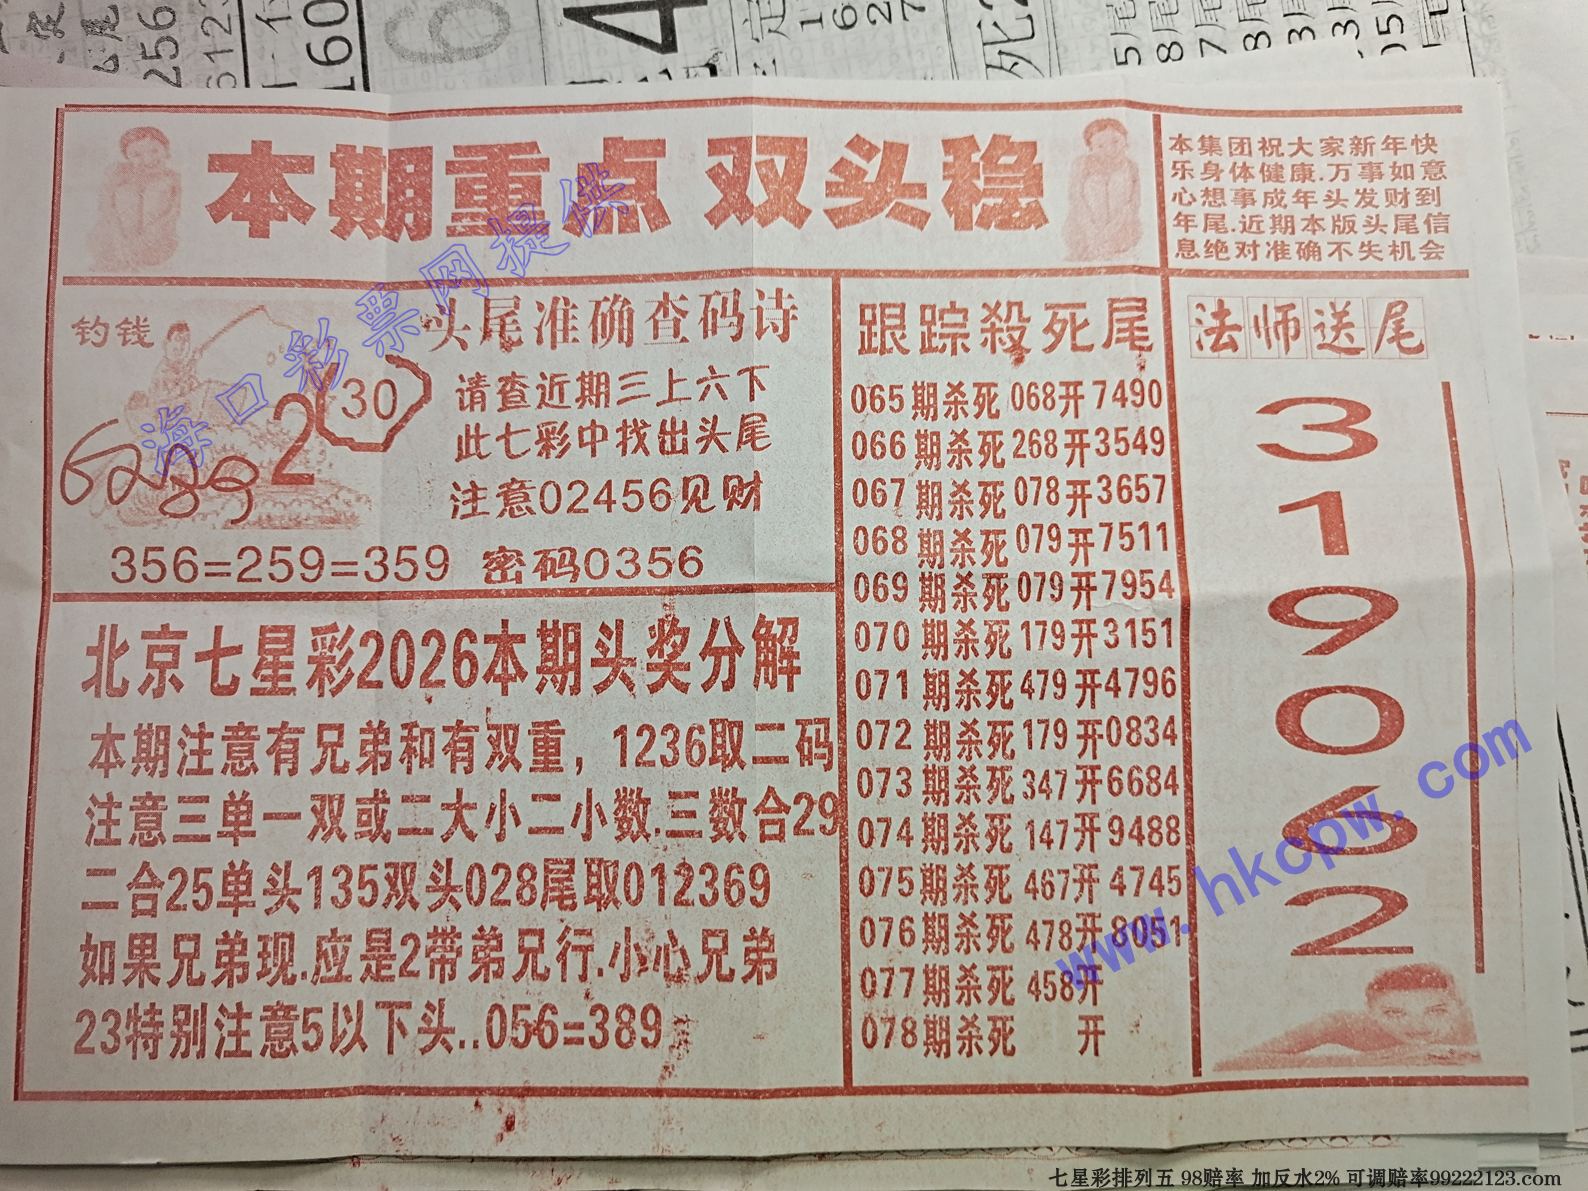 本期重点 双头稳
本集团祝大家新年快
乐身体健康.万事如意
心想事成年头发财到
年尾.近期本版头尾信
息绝对准确不失机会
钓钱
2
30
头尾准确查码诗
请查近期三上六下
此七彩中找出头尾
注意02456见财
356=259=359 密码0356
北京七星彩2026本期头奖分解
本期注意有兄弟和有双重，1236取二码
注意三单一双或二大小二小数.三数合29
二合25单头135双头028尾取012369
如果兄弟现.应是2带弟兄行.小心兄弟
23特别注意5以下头..056=389
跟踪殺死尾
065期杀死068开7490
066期杀死268开3549
067期杀死078开3657
068期杀死079开7511
069期杀死079开7954
070期杀死179开3151
071期杀死479开4796
072期杀死179开0834
073期杀死347开6684
074期杀死147开9488
075期杀死467开4745
076期杀死478开8051
077期杀死458开
078期杀死 开
法师送尾
3
1
9
0
6
2
海口彩票网提供
www.hkcpw.com
七星彩排列五 98赔率 加反水2% 可调赔率99222123.com